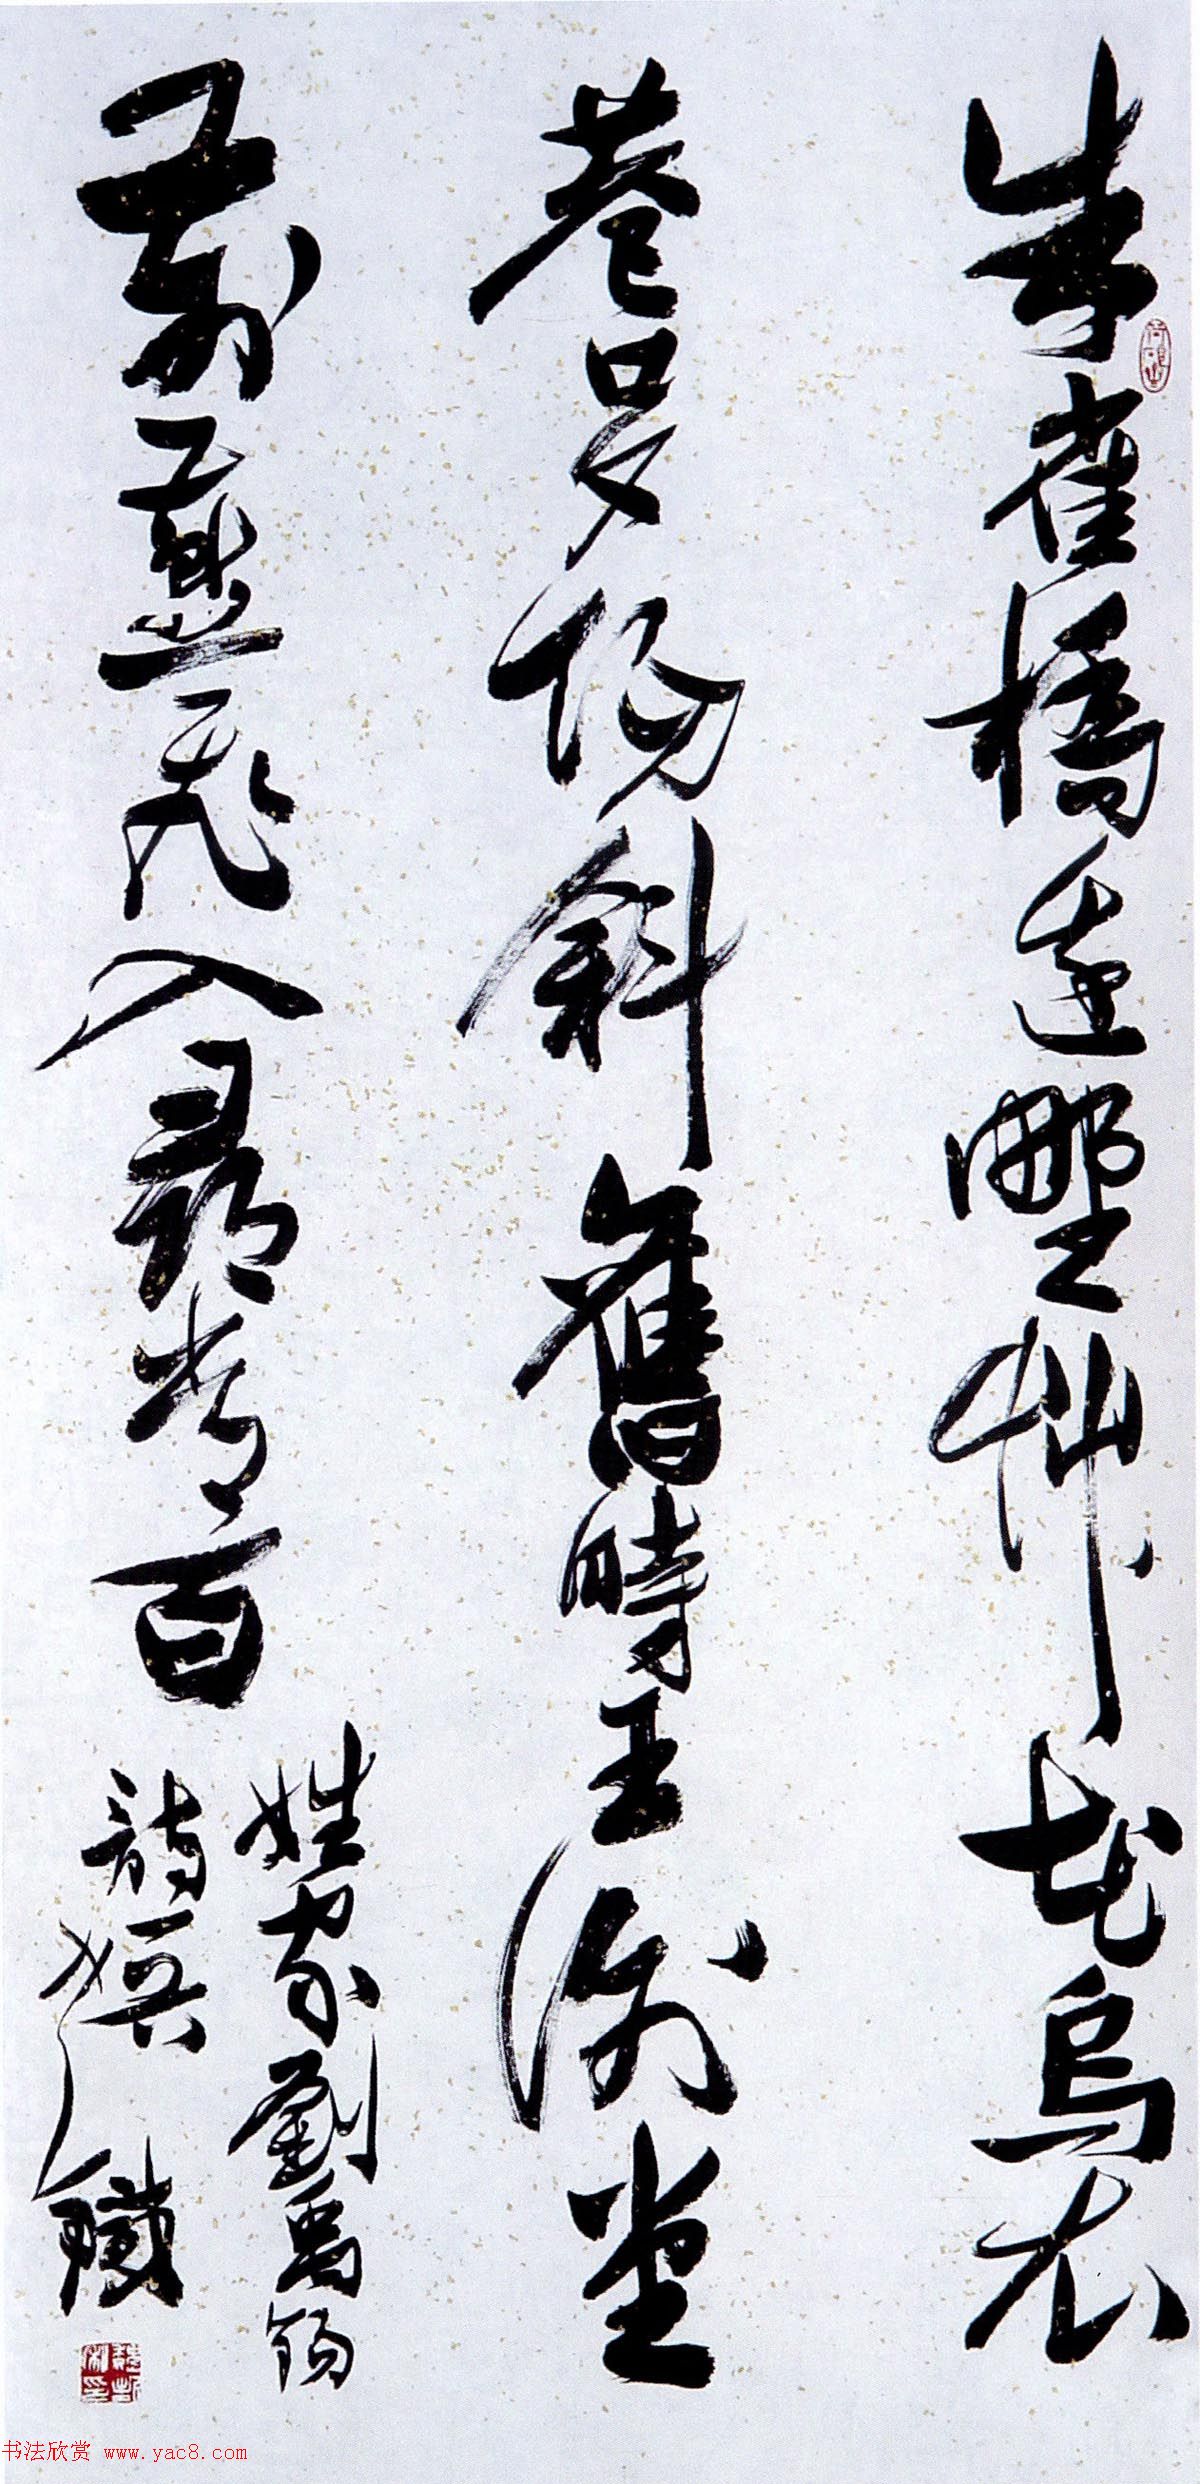 朱雀橋邊野草花烏衣
巷口夕陽斜舊時王謝堂
前燕飛入尋常百
姓家劉禹錫
詩
书法欣赏 www.yac8.com